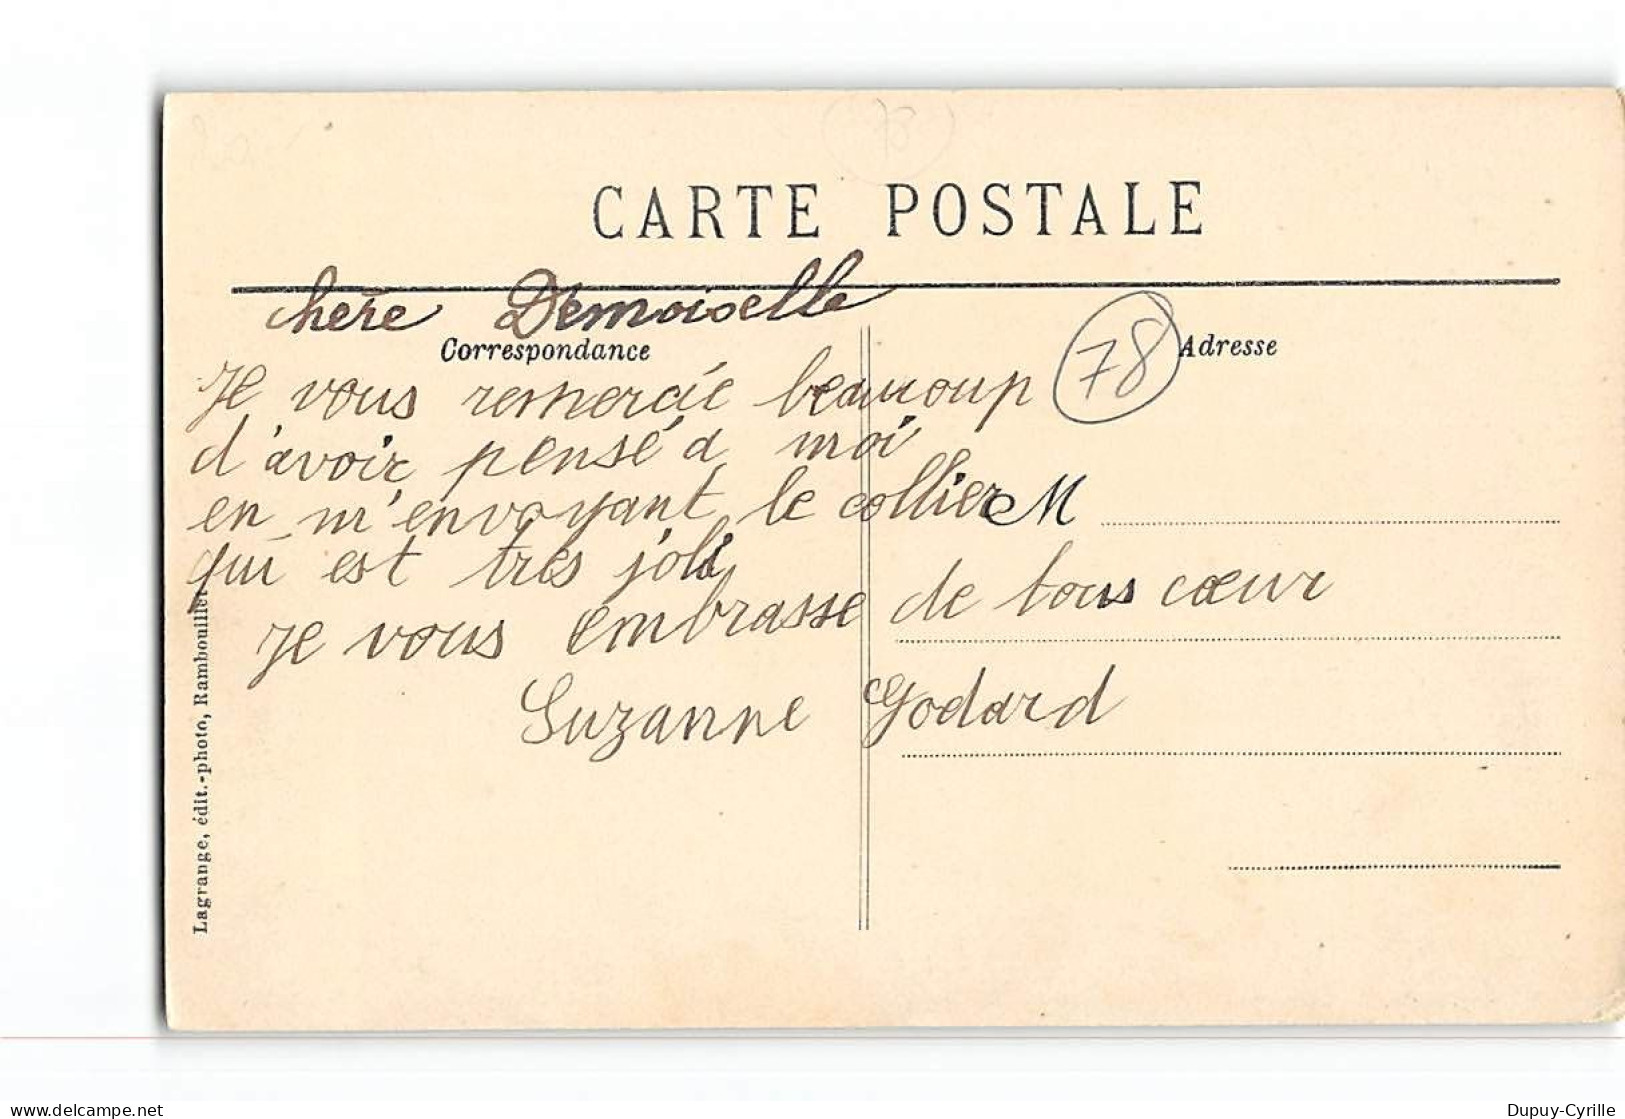 78
CARTE POSTALE
chere Demoiselle
Correspondance
78
Adresse
Je vous remercie beaucoup
d'avoir pensé a moi
en m'envoyant le collier
M
qui est très joli
Je vous embrasse de tous cœur
Suzanne Godard
Lagrange, édit.-photo, Rambouillet
delcampe.net
Dupuy-Cyrille